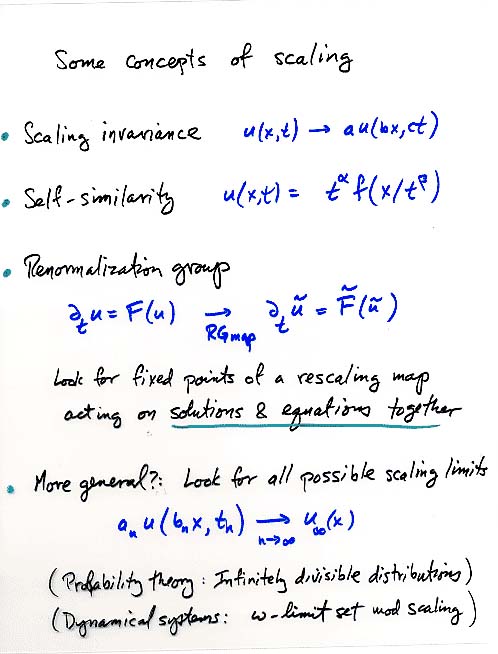 Some concepts of scaling
• Scaling invariance u(x,t) → a u(bx, ct)
• Self-similarity u(x,t) = t^α f(x/t^β)
• Renormalization group
∂_t u = F(u) → ∂_t ũ = F̃(ũ)
RG map
Look for fixed points of a rescaling map
acting on solutions & equations together
• More general?: Look for all possible scaling limits
a_n u(b_n x, t_n) → u_∞(x)
n→∞
(Probability theory: Infinitely divisible distributions)
(Dynamical systems: ω-limit set mod scaling)